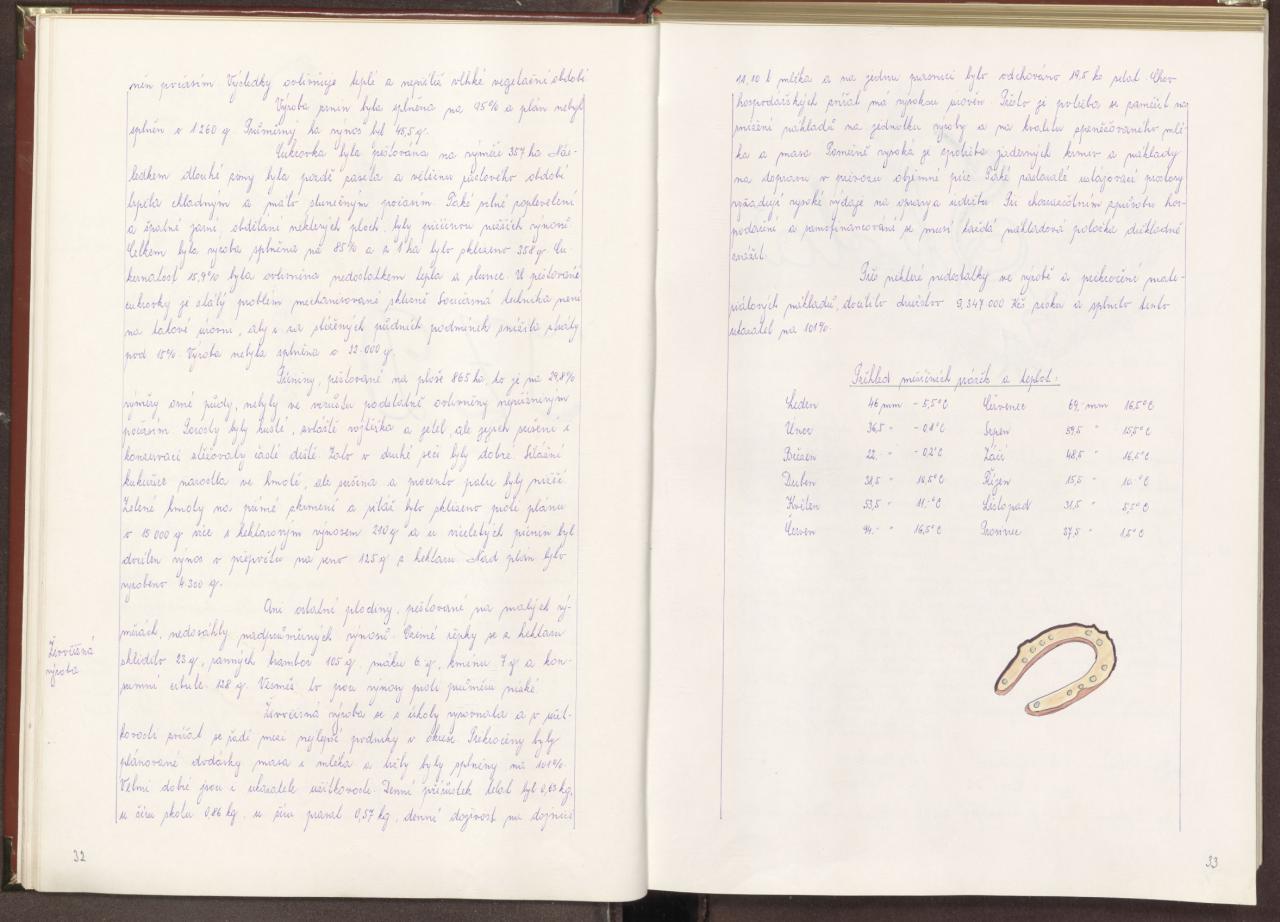 něn počasím. Výsledky ovlivňuje teplé a nepříliš vlhké vegetační období
Výroba zrnin byla splněna na 95% a plán nebyl
splněn o 1260 q. Průměrný ha výnos byl 45,5 q.
Cukrovka byla pěstována na výměře 357 ha. Nás-
ledkem dlouhé zimy byla pozdě zaseta a většinu růstového období
trpěla chladným a málo slunečným počasím. Také silné zaplevelení
a špatné jarní obdělání některých ploch, byly příčinou nižších výnosů.
Celkem byla výroba splněna na 85% a z 1 ha bylo sklizeno 358 q. Cu
kernatost 15,9% byla ovlivněna nedostatkem tepla a slunce. U pěstování
cukrovky je stálý problém mechanisované sklizně. Současná technika není
na takové úrovni, aby i za ztížených půdních podmínek snížila ztráty
pod 15%. Výroba nebyla splněna o 32.000 q.
Pícniny, pěstované na ploše 865 ha, to je na 29,8%
výměry orné půdy, nebyly ve vzrůstu podstatně ovlivněny nepříznivým
počasím. Porosty byly husté, zvláště vojtěška a jetel, ale jejich sušení i
konzervaci ztěžovaly časté deště. Zato v druhé seči byly dobré. Silážní
kukuřice narostla ve hmotě, ale sušina a procento palic byly nižší.
Zelené hmoty na přímé zkrmení a siláž bylo sklizeno proti plánu
o 15 000 q více s hektarovým výnosem 210 q a u víceletých pícnin byl
docílen výnos v přepočtu na seno 125 q z hektaru. Nad plán bylo
vyrobeno 4.300 q.
Ani ostatní plodiny, pěstované na malých vý-
měrách, nedosáhly nadprůměrných výnosů. Ozimé řepky se z hektaru
sklidilo 23 q, ranných brambor 105 q, máku 6 q, kmínu 7 q a kon-
zumní cibule 128 q. Vesměs to jsou výnosy proti průměru nízké.
Živočišná
výroba
Živočišná výroba se s úkoly vyrovnala a v užit-
kovosti zvířat se řadí mezi nejlepší podniky v okrese. Překročeny byly
plánované dodávky masa i mléka a tržby byly splněny na 101%.
Velmi dobré jsou i ukazatele užitkovosti. Denní přírůstek telat byl 0,63 kg,
u žíru skotu 0,86 kg, u žíru prasat 0,57 kg, denní dojivost na dojnici
32
11,10 l mléka a na jednu prasnici bylo odchováno 19,5 ks selat. Chov
hospodářských zvířat má vysokou úroveň. Přesto je potřeba se zaměřit na
snížení nákladů na jednotku výroby a na kvalitu zpeněžovaného mlé-
ka a masa. Poměrně vysoká je spotřeba jaderných krmiv a náklady
na dopravu v převozu objemné píce. Také zastaralé ustajovací prostory
vyžadují vysoké výdaje na opravy a údržbu. Při chozrasčotním způsobu hos-
podaření a samofinancování se musí každá nákladová položka důkladně
zvážit.
Přes některé nedostatky ve výrobě a překročení mate-
riálových nákladů, docílilo družstvo 9,347.000 Kčs zisku a splnilo tento
ukazatel na 101%.
Přehled měsíčních srážek a teplot:
Leden 46 mm -5,5°C Červenec 69,- mm 16,5°C
Únor 36,5 " -0,1°C Srpen 39,5 " 15,5°C
Březen 22,- " -0,2°C Září 48,5 " 16,5°C
Duben 31,5 " 10,5°C Říjen 15,5 " 10,-°C
Květen 53,5 " 11,-°C Listopad 31,5 " 5,5°C
Červen 94,- " 16,5°C Prosinec 37,5 " 1,5°C
33